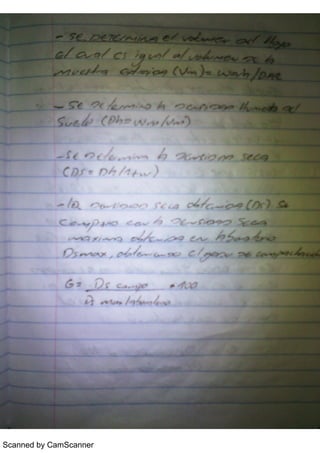 - se determina el volumen del Hoyo
el cual es igual al volumen de la
muestra (Vm)=
- se determina la densidad Humeda del
suelo (Dh=Wm/Vm)
- se determina la densidad seca
(Ds=Dh/1+w)
- la densidad seca obtenida (Ds) se
compara con la densidad seca
maxima obtenida en laboratorio
Dsmax, obteniendo el de compactacion
G= Ds campo *100
Ds max laboratorio
Scanned by CamScanner